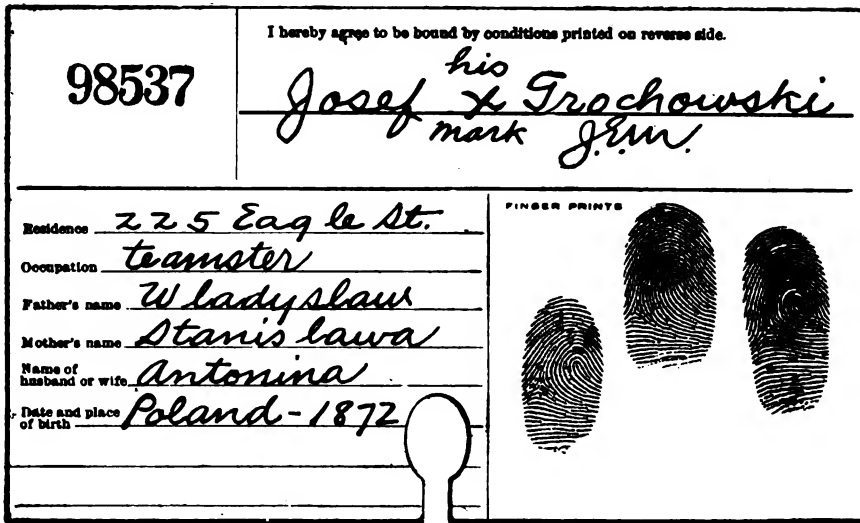 I hereby agree to be bound by conditions printed on reverse side.
98537
his
Josef x Grochowski
mark J.E.W.
Residence 225 Eagle St.
Occupation teamster
Father's name Wladyslaw
Mother's name Stanislawa
Name of husband or wife Antonina
Date and place of birth Poland - 1872
FINGER PRINTS